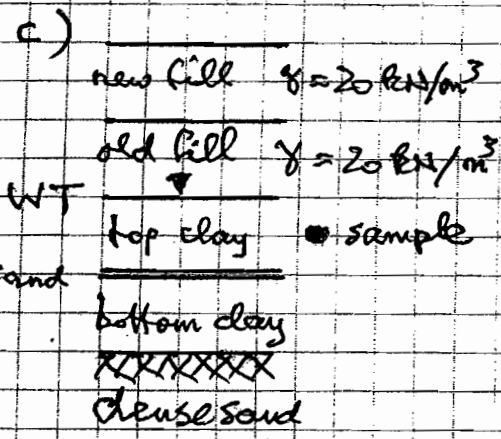 c)
new fill γ = 20 kN/m³
old fill γ = 20 kN/m³
WT
top clay • sample
sand
bottom clay
dense sand